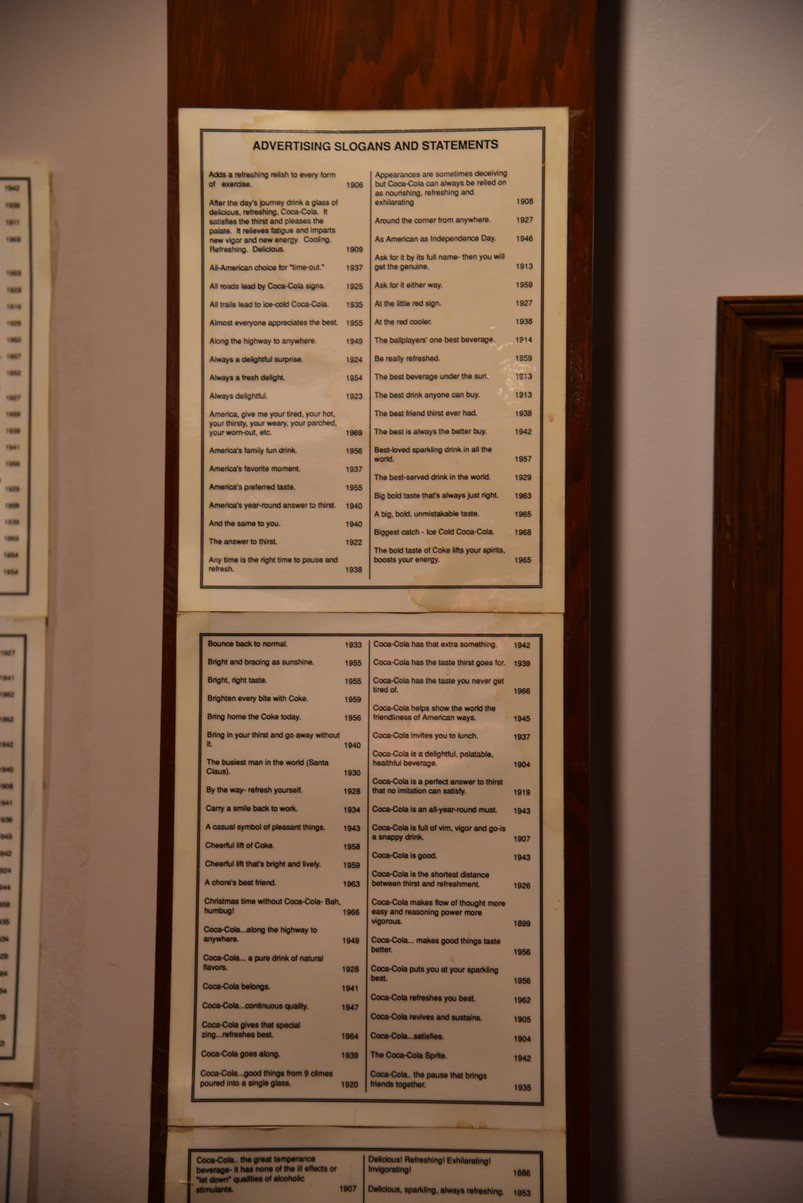 ADVERTISING SLOGANS AND STATEMENTS
Adds a refreshing relish to every form
of exercise. 1906
After the day's journey drink a glass of
delicious, refreshing, Coca-Cola. It
satisfies the thirst and pleases the
palate. It relieves fatigue and imparts
new vigor and new energy. Cooling.
Refreshing. Delicious. 1909
All-American choice for "time-out." 1937
All roads lead by Coca-Cola signs. 1925
All trails lead to ice-cold Coca-Cola. 1935
Almost everyone appreciates the best. 1955
Along the highway to anywhere. 1949
Always a delightful surprise. 1924
Always a fresh delight. 1954
Always delightful. 1923
America, give me your tired, your hot,
your thirsty, your weary, your parched,
your worn-out, etc. 1969
America's family fun drink. 1956
America's favorite moment. 1937
America's preferred taste. 1955
America's year-round answer to thirst. 1940
And the same to you. 1940
The answer to thirst. 1922
Any time is the right time to pause and
refresh. 1938
Appearances are sometimes deceiving
but Coca-Cola can always be relied on
as nourishing, refreshing and
exhilarating 1908
Around the corner from anywhere. 1927
As American as Independence Day. 1946
Ask for it by its full name- then you will
get the genuine. 1913
Ask for it either way. 1959
At the little red sign. 1927
At the red cooler. 1938
The ballplayers' one best beverage. 1914
Be really refreshed. 1959
The best beverage under the sun. 1913
The best drink anyone can buy. 1913
The best friend thirst ever had. 1938
The best is always the better buy. 1942
Best-loved sparkling drink in all the
world. 1957
The best-served drink in the world. 1929
Big bold taste that's always just right. 1963
A big, bold, unmistakable taste. 1965
Biggest catch - Ice Cold Coca-Cola. 1968
The bold taste of Coke lifts your spirits,
boosts your energy. 1965
Bounce back to normal. 1933
Bright and bracing as sunshine. 1955
Bright, right taste. 1955
Brighten every bite with Coke. 1959
Bring home the Coke today. 1956
Bring in your thirst and go away without
it. 1940
The busiest man in the world (Santa
Claus). 1930
By the way- refresh yourself. 1928
Carry a smile back to work. 1934
A casual symbol of pleasant things. 1943
Cheerful lift of Coke. 1958
Cheerful lift that's bright and lively. 1959
A chore's best friend. 1963
Christmas time without Coca-Cola- Bah,
humbug! 1966
Coca-Cola...along the highway to
anywhere. 1949
Coca-Cola... a pure drink of natural
flavors. 1928
Coca-Cola belongs. 1941
Coca-Cola...continuous quality. 1947
Coca-Cola gives that special
zing...refreshes best. 1964
Coca-Cola goes along. 1939
Coca-Cola...good things from 9 climes
poured into a single glass. 1920
Coca-Cola has that extra something. 1942
Coca-Cola has the taste thirst goes for. 1939
Coca-Cola has the taste you never get
tired of. 1966
Coca-Cola helps show the world the
friendliness of American ways. 1945
Coca-Cola invites you to lunch. 1937
Coca-Cola is a delightful, palatable,
healthful beverage. 1904
Coca-Cola is a perfect answer to thirst
that no imitation can satisfy. 1919
Coca-Cola is an all-year-round must. 1943
Coca-Cola is full of vim, vigor and go-is
a snappy drink. 1907
Coca-Cola is good. 1943
Coca-Cola is the shortest distance
between thirst and refreshment. 1926
Coca-Cola makes flow of thought more
easy and reasoning power more
vigorous. 1899
Coca-Cola... makes good things taste
better. 1956
Coca-Cola puts you at your sparkling
best. 1956
Coca-Cola refreshes you best. 1962
Coca-Cola revives and sustains. 1905
Coca-Cola...satisfies. 1904
The Coca-Cola Sprite. 1942
Coca-Cola.. the pause that brings
friends together. 1935
Coca-Cola.. the great temperance
beverage- it has none of the ill effects or
"let down" qualities of alcoholic
stimulants. 1907
Delicious! Refreshing! Exhilarating!
Invigorating! 1886
Delicious, sparkling, always refreshing. 1953